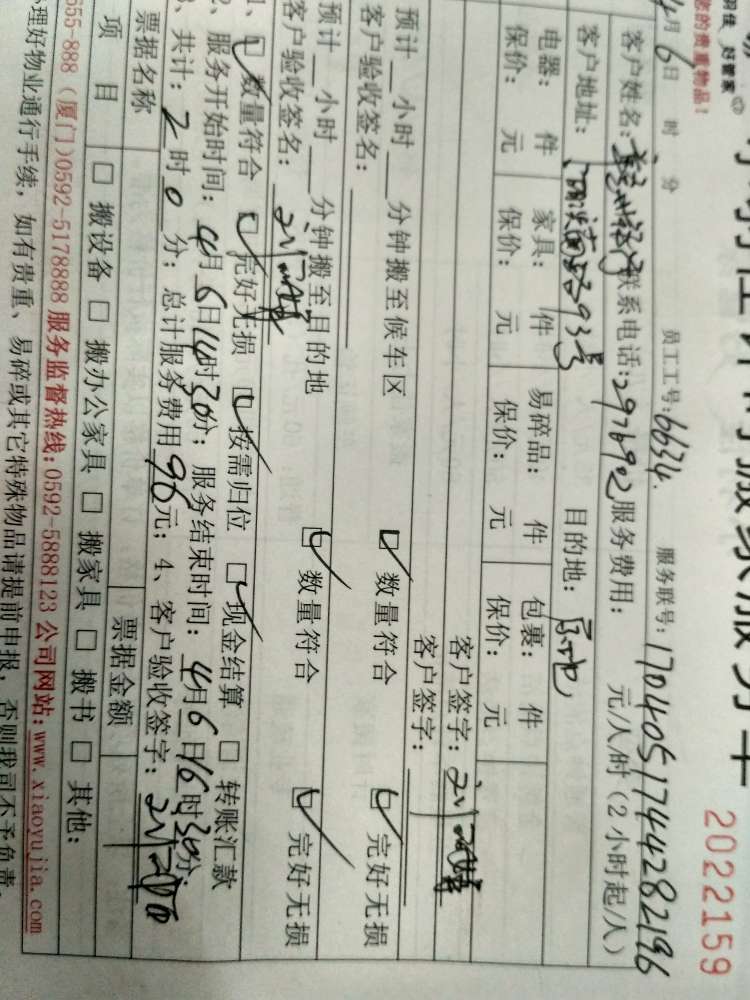 2022159
好管家
您的贵重物品！
4月6日 时 分 员工工号：6634. 服务联号：1704051744282196
客户姓名： 联系电话：2976902 服务费用： 元/人/时（2小时起/人）
客户地址： 93号 目的地：原地
电器： 件 家具： 件 易碎品： 件 包裹： 件 客户签字：
保价： 元 保价： 元 保价： 元 保价： 元 客户签字：
预计 小时 分钟搬至候车区 □ 数量符合 □ 完好无损
客户验收签名：
预计 小时 分钟搬至目的地 □ 数量符合 □ 完好无损
客户验收签名：
1、□ 数量符合 □ 完好无损 □ 按需归位 □ 现金结算 □ 转账汇款
2、服务开始时间：4月6日14时30分；服务结束时间：4月6日16时30分；
3、共计：2时0分；总计服务费用90元；4、客户验收签字：
票据名称 票据金额
项 目 □ 搬设备 □ 搬办公家具 □ 搬家具 □ 搬书 □ 其他：
555-888（厦门）0592-5178888 服务监督热线：0592-5888123 公司网站：www.xiaoyujia.com
办理好物业通行手续，如有贵重、易碎或其它特殊物品请提前申报，否则我司不予负责。